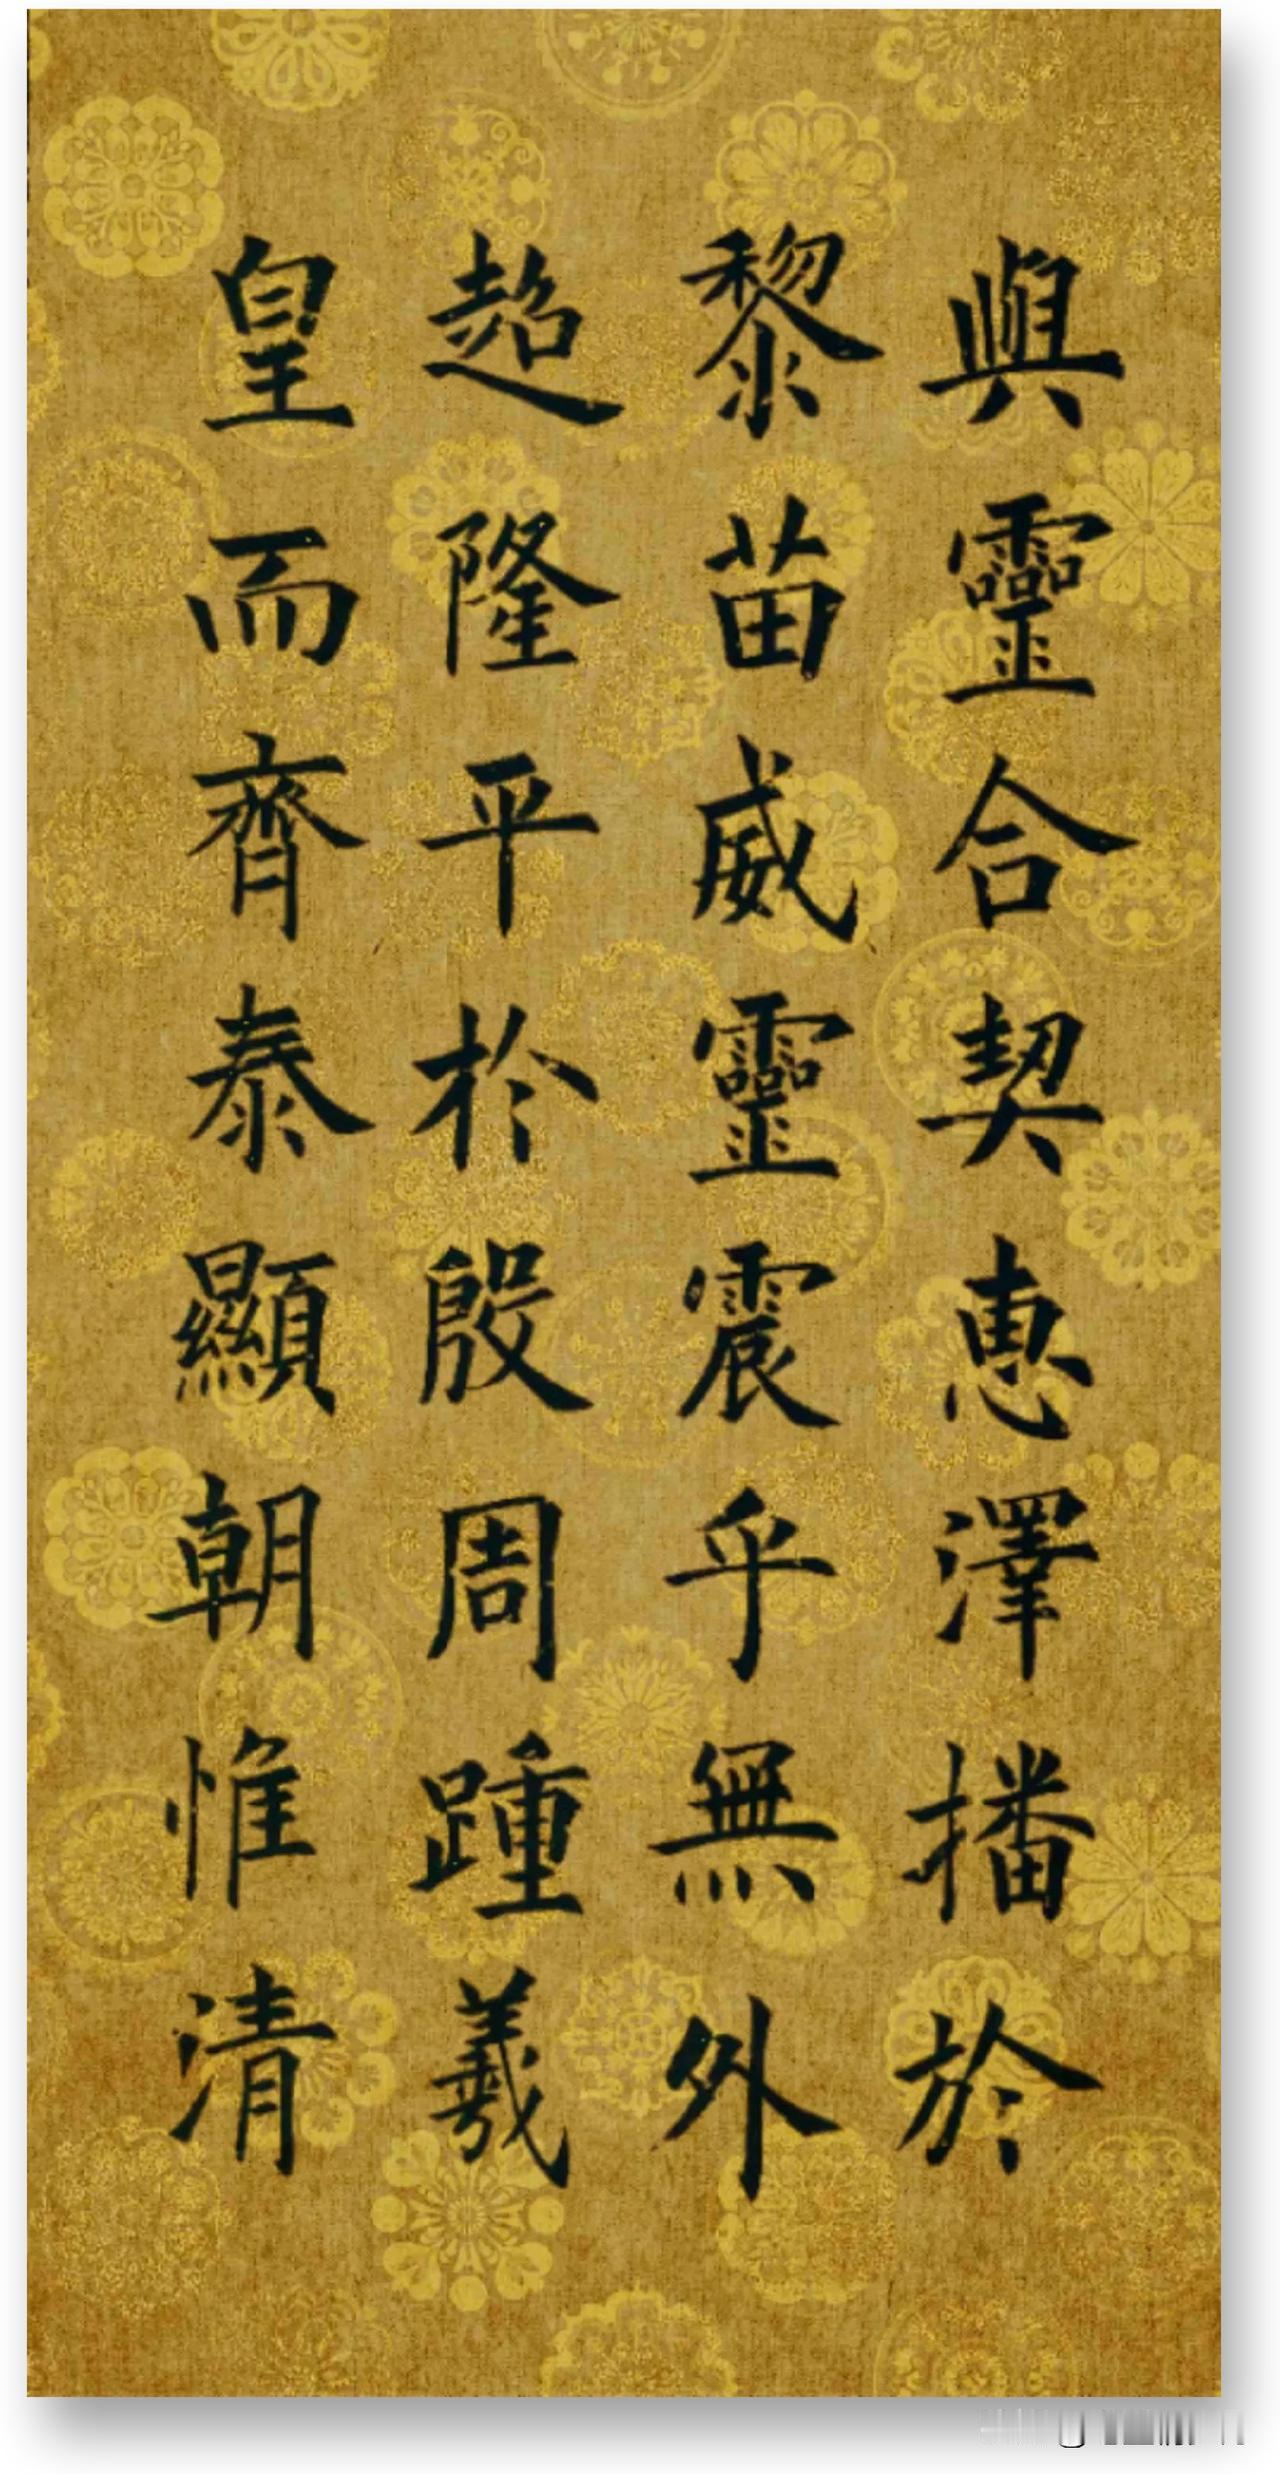 與靈合契恵澤播於
黎苗威靈震乎無外
超隆平於殷周踵羲
皇而齊泰顯朝惟清